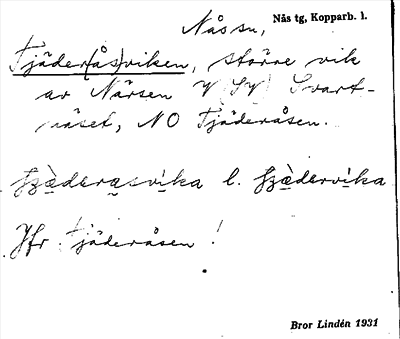 Nås sn, Nås tg, Kopparb. l.
Tjäder(ås)viken, större vik
av Närsen V (SV) Svart-
näset, NO Tjäderåsen.
fzæ̀derasvika l. fzæ̀dervika
Jfr Tjäderåsen!
Bror Lindén 1931